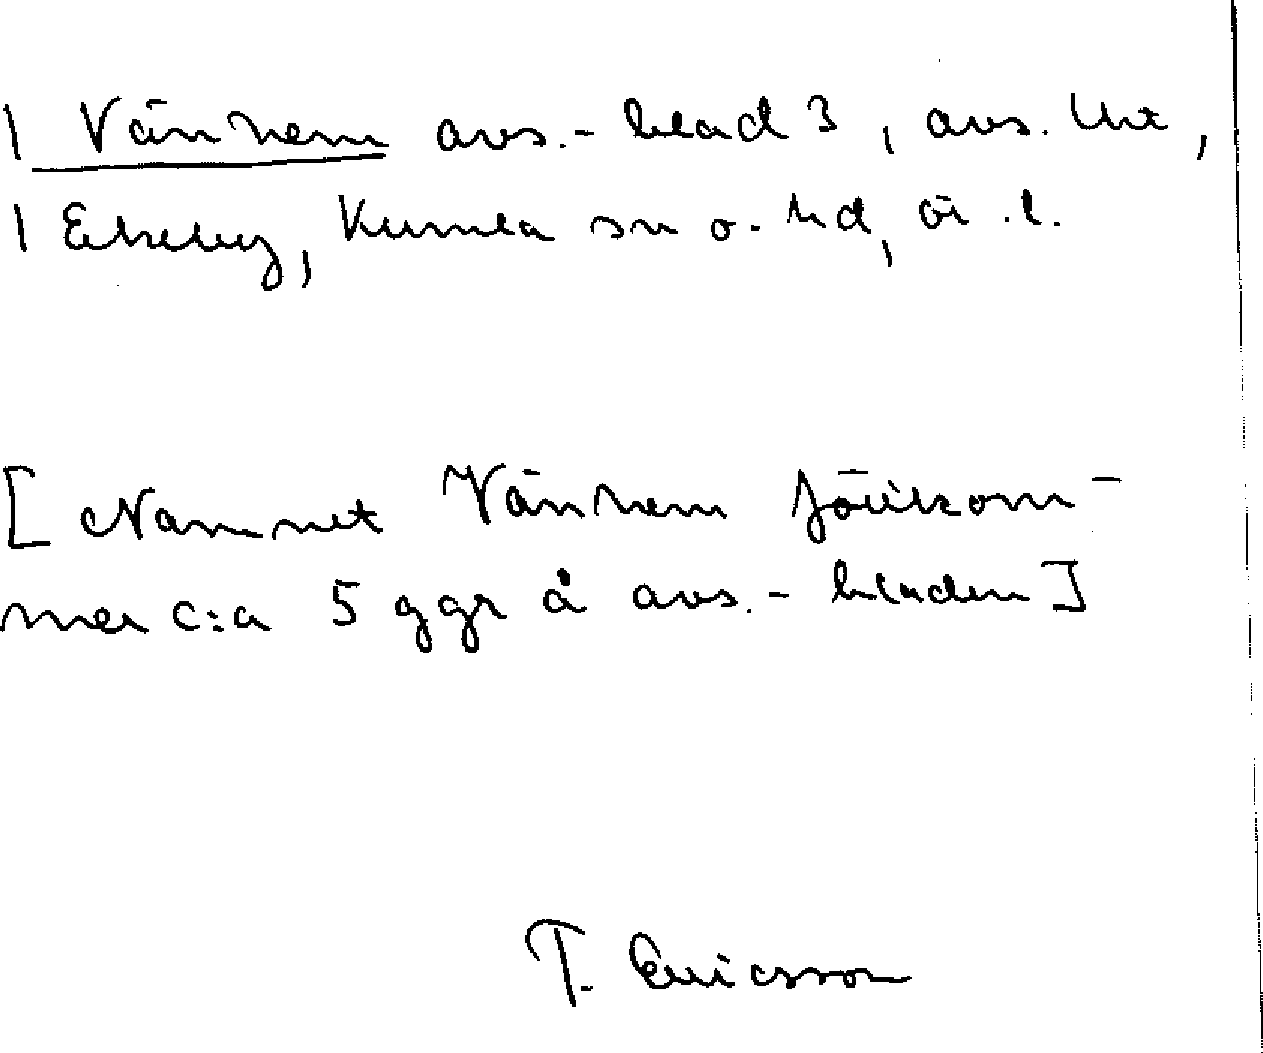 | Vänhem avs.-blad 3, avs. Uhr,
| Ekeby, Kumla sn o. hd, ör. l.
[Namnet Vänhem förekom-
mer c:a 5 ggr å avs.-bladen]
T. Ericsson